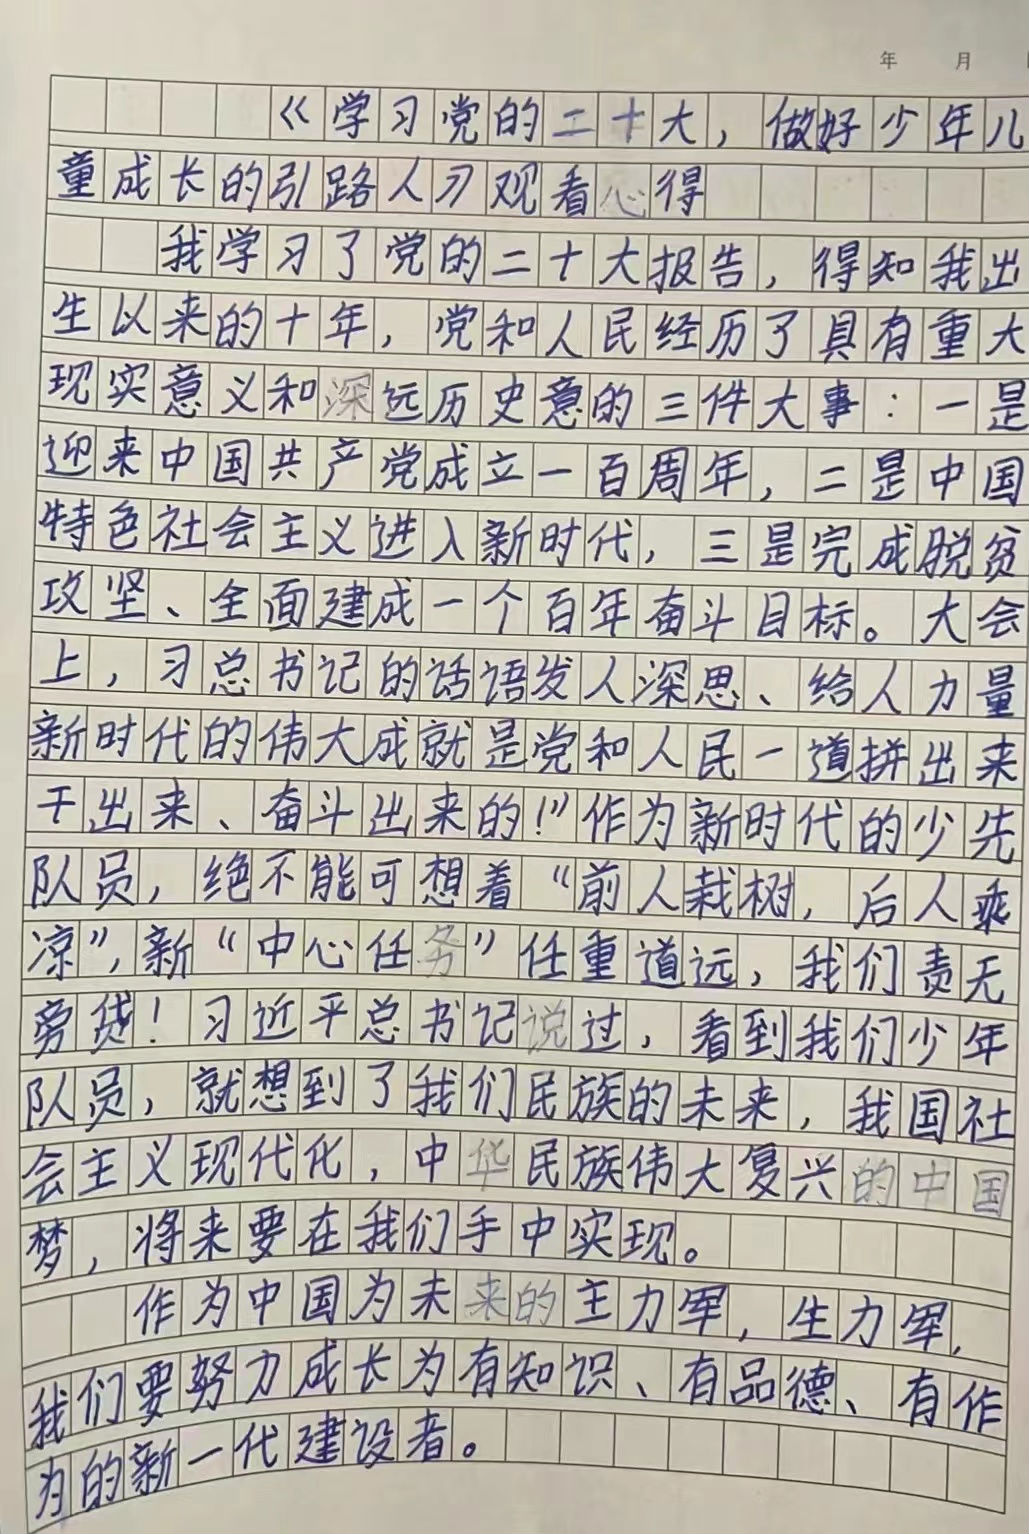 年 月
《学习党的二十大，做好少年儿
童成长的引路人》观看心得
我学习了党的二十大报告，得知我出
生以来的十年，党和人民经历了具有重大
现实意义和深远历史意的三件大事：一是
迎来中国共产党成立一百周年，二是中国
特色社会主义进入新时代，三是完成脱贫
攻坚、全面建成一个百年奋斗目标。大会
上，习总书记的话语发人深思、给人力量
新时代的伟大成就是党和人民一道拼出来
干出来、奋斗出来的！”作为新时代的少先
队员，绝不能可想着“前人栽树，后人乘
凉”，新“中心任务”任重道远，我们责无
旁贷！习近平总书记说过，看到我们少年
队员，就想到了我们民族的未来，我国社
会主义现代化，中华民族伟大复兴的中国
梦，将来要在我们手中实现。
作为中国为未来的主力军，生力军，
我们要努力成长为有知识、有品德、有作
为的新一代建设者。